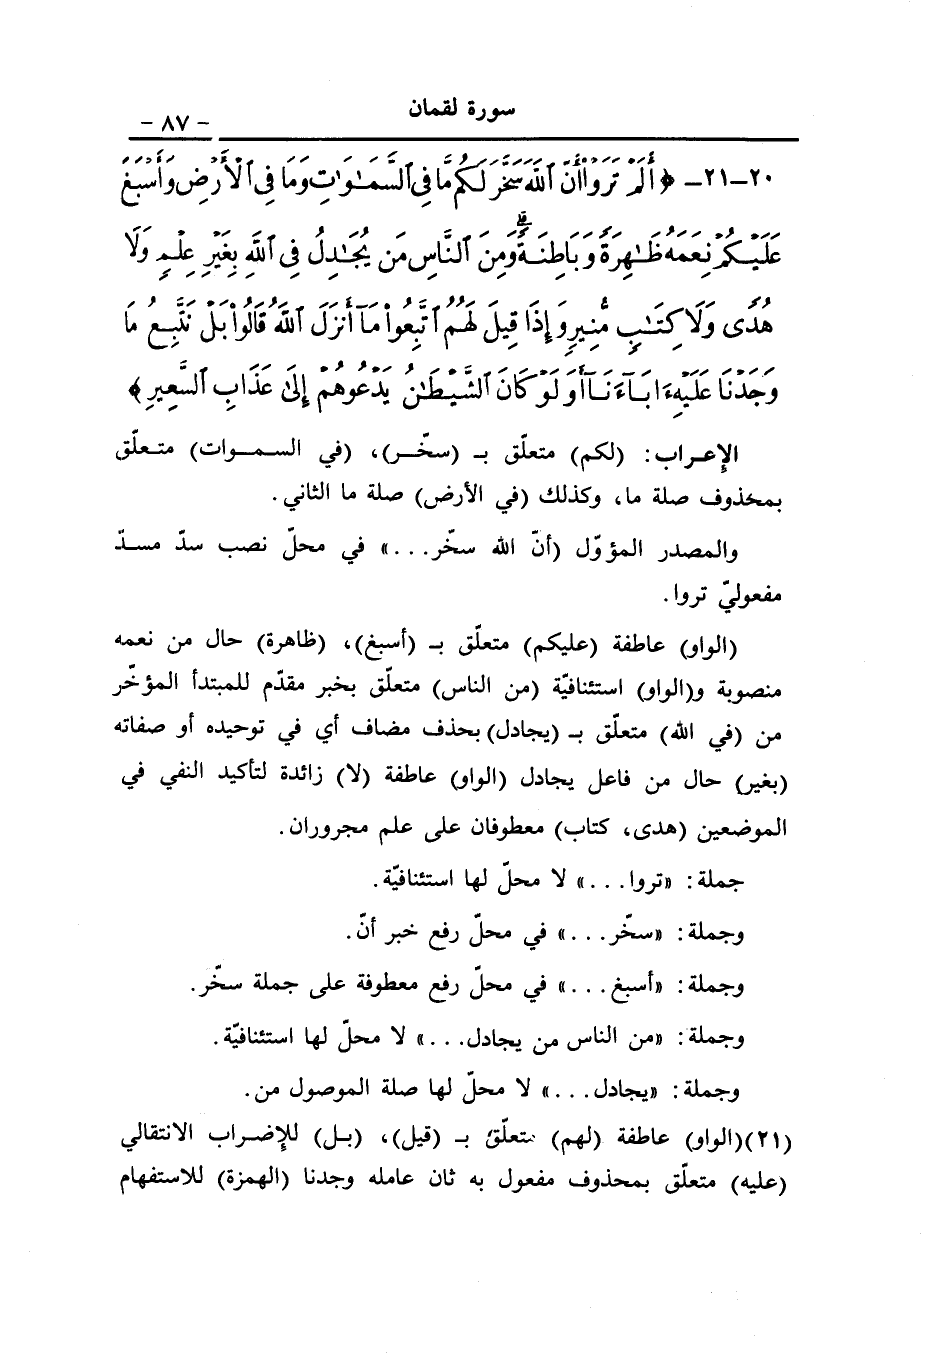 سورة لقمان
- ٨٧ -
٢٠-٢١- ﴿ أَلَمْ تَرَوْا أَنَّ ٱللَّهَ سَخَّرَ لَكُم مَّا فِى ٱلسَّمَـٰوَٰتِ وَمَا فِى ٱلْأَرْضِ وَأَسْبَغَ
عَلَيْكُمْ نِعَمَهُۥ ظَـٰهِرَةً وَبَاطِنَةً ۗ وَمِنَ ٱلنَّاسِ مَن يُجَـٰدِلُ فِى ٱللَّهِ بِغَيْرِ عِلْمٍ وَلَا
هُدًى وَلَا كِتَـٰبٍ مُّنِيرٍ وَإِذَا قِيلَ لَهُمُ ٱتَّبِعُوا۟ مَآ أَنزَلَ ٱللَّهُ قَالُوا۟ بَلْ نَتَّبِعُ مَا
وَجَدْنَا عَلَيْهِ ءَابَآءَنَآ أَوَلَوْ كَانَ ٱلشَّيْطَـٰنُ يَدْعُوهُمْ إِلَىٰ عَذَابِ ٱلسَّعِيرِ ﴾
الإعـراب: (لكم) متعلّق بـ (سخّـر)، (في السمـوات) متـعلّق
بمحذوف صلة ما، وكذلك (في الأرض) صلة ما الثاني.
والمصدر المؤوّل (أنّ الله سخّر...» في محلّ نصب سدّ مسـدّ
مفعوليّ تروا.
(الواو) عاطفة (عليكم) متعلّق بـ (أسبغ)، (ظاهرة) حال من نعمه
منصوبة و(الواو) استئنافيّة (من الناس) متعلّق بخبر مقدّم للمبتدأ المؤخّر
من (في الله) متعلّق بـ (يجادل) بحذف مضاف أي في توحيده أو صفاته
(بغير) حال من فاعل يجادل (الواو) عاطفة (لا) زائدة لتأكيد النفي في
الموضعين (هدى، كتاب) معطوفان على علم مجروران.
جملة: «تروا...» لا محلّ لها استئنافيّة.
وجملة: «سخّر...» في محلّ رفع خبر أنّ.
وجملة: «أسبغ...» في محلّ رفع معطوفة على جملة سخّر.
وجملة: «من الناس من يجادل...» لا محلّ لها استئنافيّة.
وجملة: «يجادل...» لا محلّ لها صلة الموصول من.
(٢١)(الواو) عاطفة (لهم) متعلّق بـ (قيل)، (بـل) للإضـراب الانتقالي
(عليه) متعلّق بمحذوف مفعول به ثان عامله وجدنا (الهمزة) للاستفهام